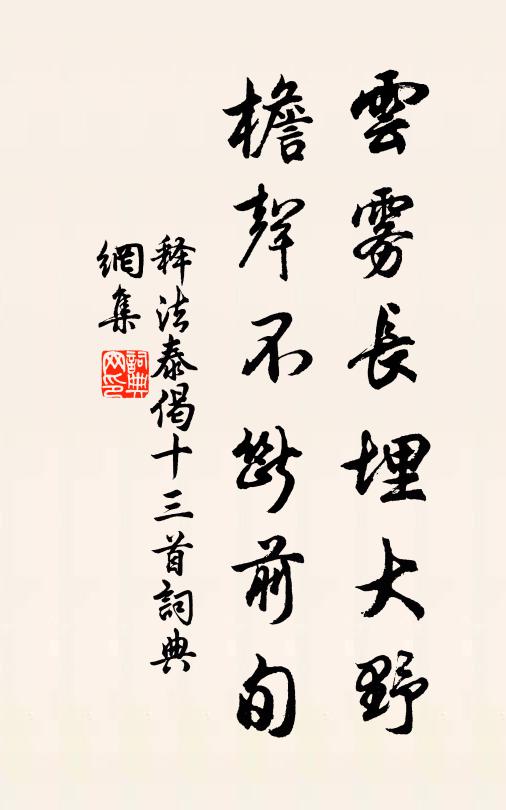 雲霧長埋大野
檐聲不斷前旬
释法泰偈十三首詞典
網集
詞典
网印